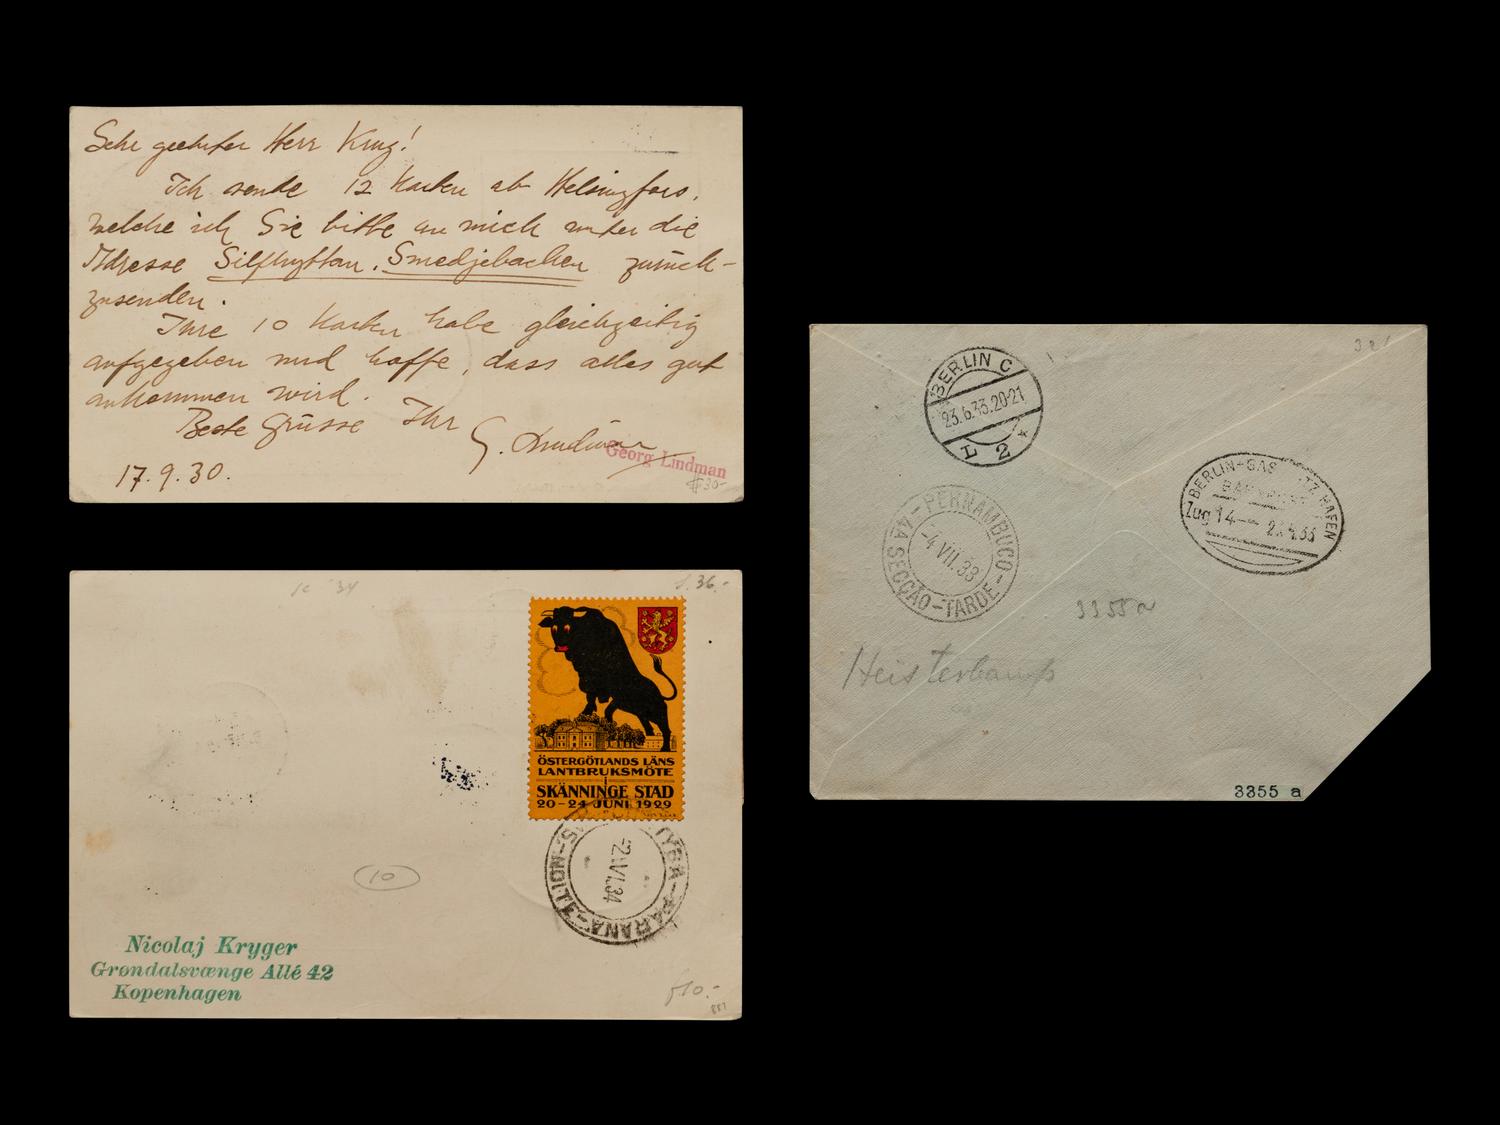 Sehr geehrter Herr Krug!
Ich sende 12 Karten ab Helsingfors,
welche ich Sie bitte an mich unter die
Adresse Silfhyttan, Smedjebacken zurück-
zusenden.
Ihre 10 Karten habe gleichzeitig
aufgegeben und hoffe, dass alles gut
ankommen wird.
Beste Grüsse Ihr
G. Lindman
Georg Lindman
17.9.30.
$30-
36.-
ÖSTERGÖTLANDS LÄNS
LANTBRUKSMÖTE
i
SKÄNNINGE STAD
20-24 JUNI 1929
TYBA-PARANÁ-3.TION-S
-2.VI.34
10
Nicolaj Kryger
Grøndalsvænge Allé 42
Kopenhagen
f10.-
BERLIN C
23.6.33.20-21
L 2 *
BERLIN-GAS TZ HAFEN
BAHNPOST
Zug 14
PERNAMBUCO-
-4 VII.33
4A SECÇÃO-TARDE
3355a
Heisterkamp
3355 a